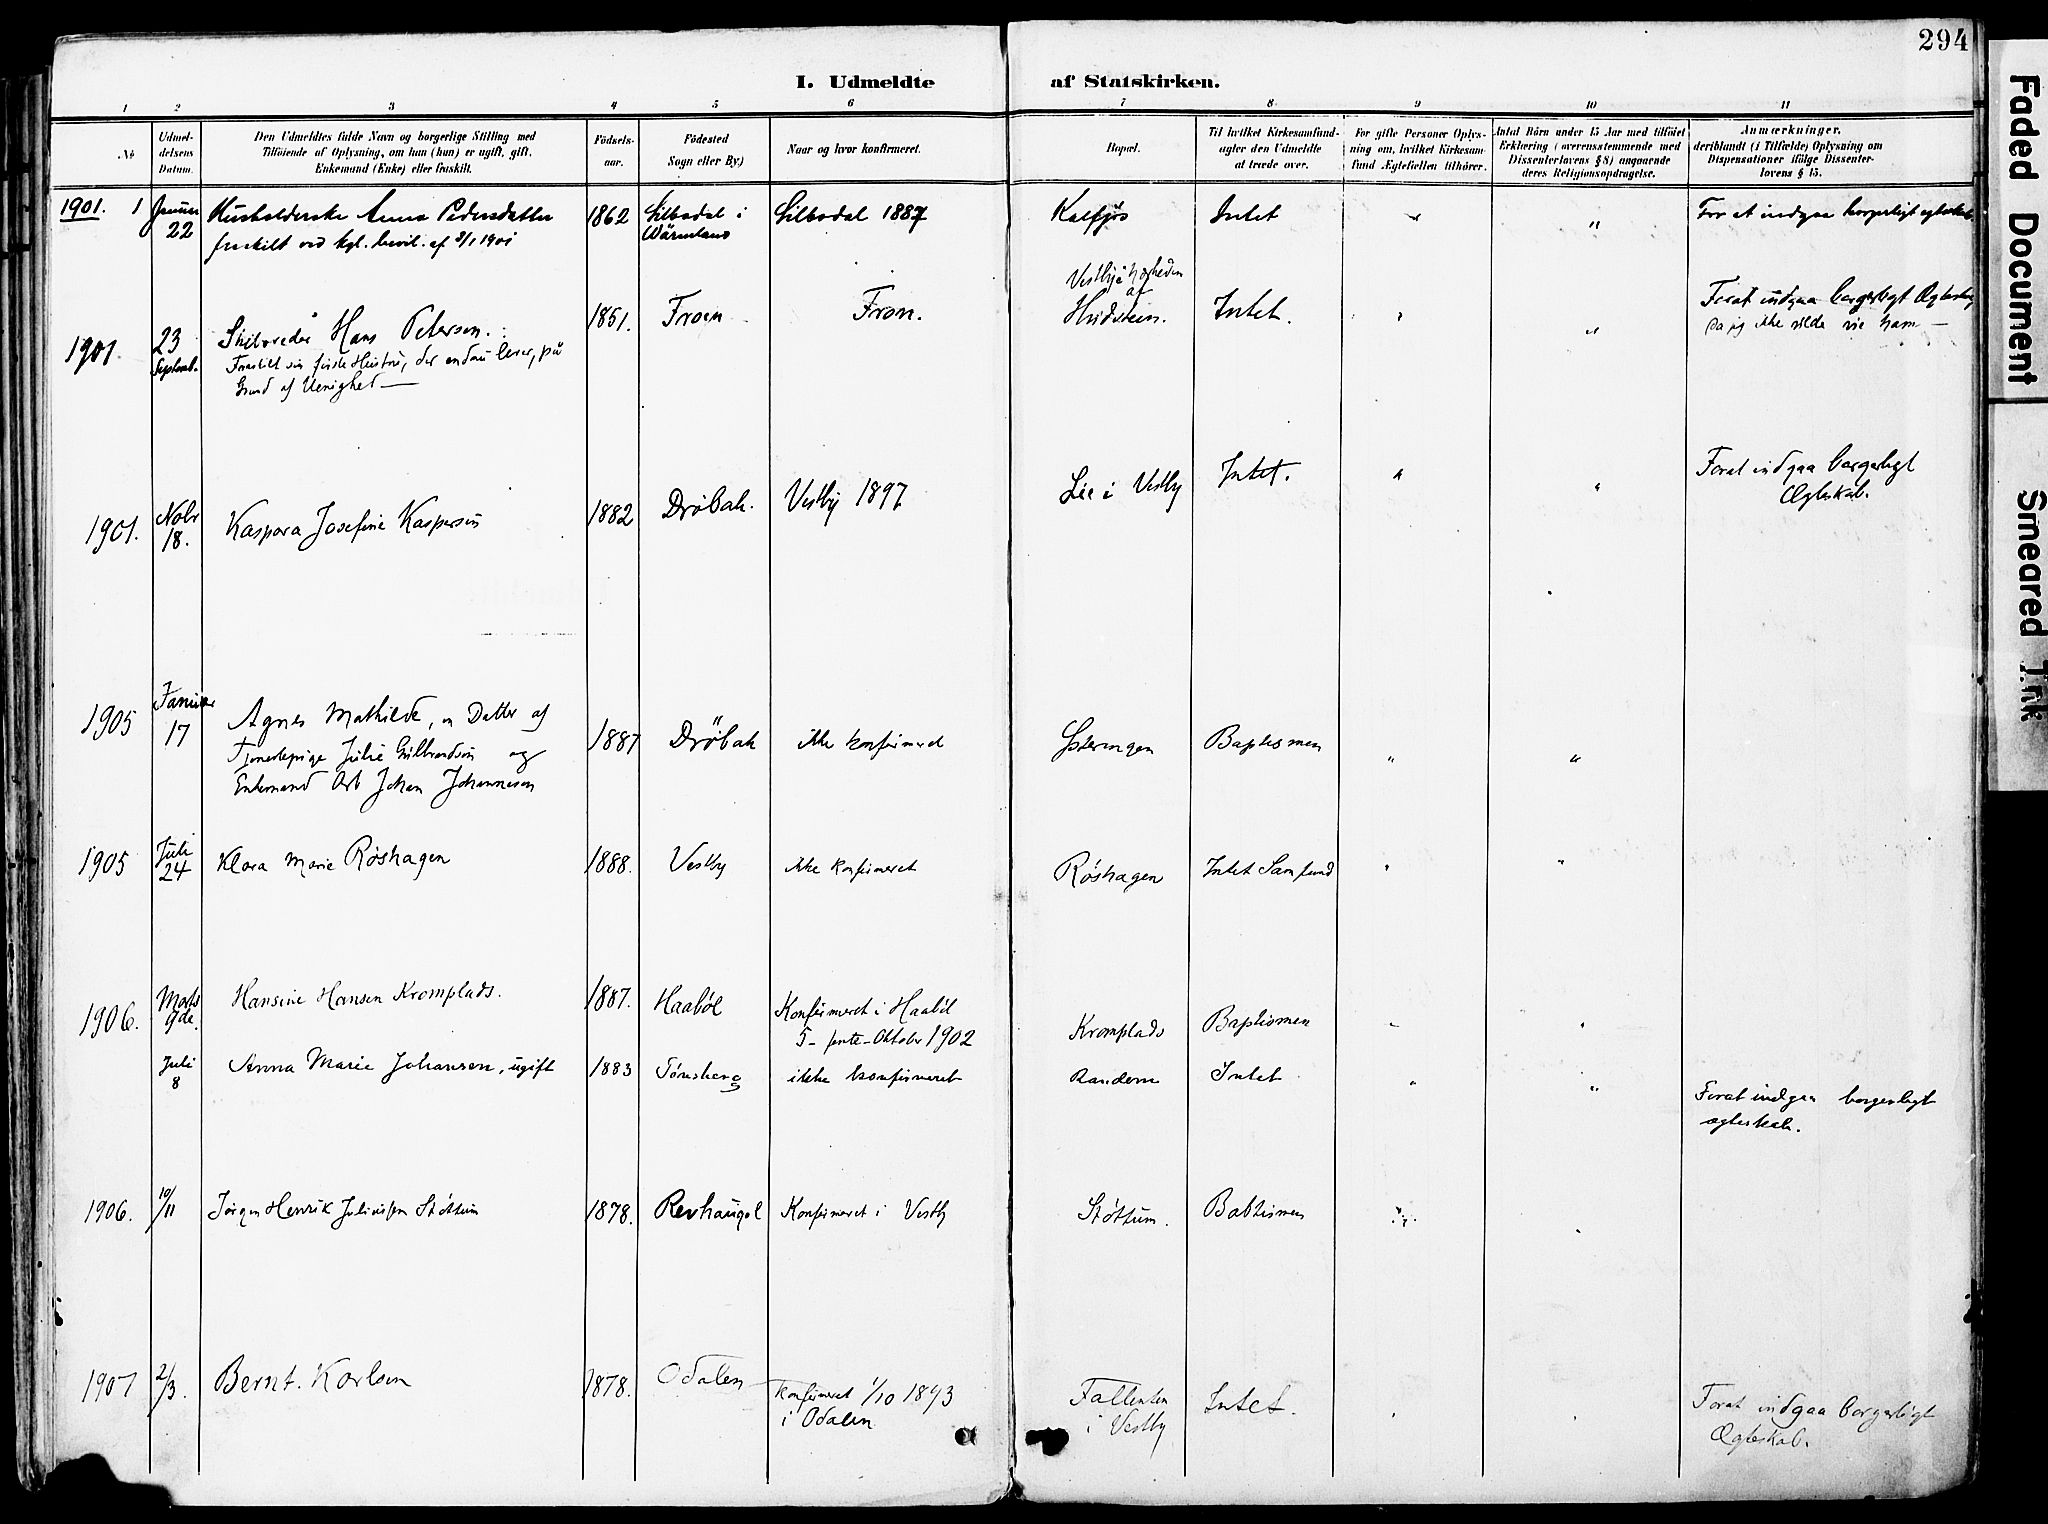 294
I. Udmeldte af Statskirken.
1 2 3 4 5 6 7 8 9 10 11
No
Udmel-
delsens
Datum.
Den Udmeldtes fulde Navn og borgerlige Stilling med
Tilföiende af Oplysning, om han (hun) er ugift, gift,
Enkemand (Enke) eller fraskilt.
Födsels-
aar.
Födested
Sogn eller By)
Naar og hvor konfirmeret.
Bopæl.
Til hvilket Kirkesamfund
agter den Udmeldte
at træde over.
For gifte Personer Oplys-
ning om, hvilket Kirkesam-
fund Ægtefællen tilhörer.
Antal Börn under 15 Aar med tilföiet
Erklæring (overensstemmende med
Dissenterlovens § 8) angaaende
deres Religionsopdragelse.
Anmærkninger,
deriblandt (i Tilfælde) Oplysning om
Dispensationer ifölge Dissenter-
lovens § 15.
1901. 1 Januar 22 Husholderske Anna Pedersdatter 1862 Silbodal i Silbodal 1887 Kalfjös Intet " " For at indgaa borgerligt ægteskab.
fraskilt ved kgl. bevil. af 3/1 1901 Wärmland
1901. 23 Septemb. Skibsreder Hans Petersen. 1851. Froen Fron. Hvidsteen. Intet. " " Forat indgaa borgerligt Ægteskab
Vestby i nærheden
af
da jeg ikke vilde vie ham —
Fraskilt sin første Hustru, der endnu lever, på
Grund af Uenighed —
1901. Nobr 18. Kaspara Josefine Kaspersen 1882 Dröbak. Vestby 1897 Lie i Vestby Intet. " " Forat indgaa borgerligt
Ægteskab.
1905 Januar 17 Agnes Mathilde, en Datter af 1887 Dröbak ikke konfirmeret Baptismen " "
Tjenestepige Julie Gulbrandsen og
Enkemand Arb Johan Johannesen
1905 Juli 24 Klara Marie Røshagen 1888. Vestby ikke konfirmeret Røshagen Intet Samfund " "
1906. Marts 9de. Hansine Hansen Kromplads. 1887. Haaböl Konfirmeret i Haaböl Kromplads Baptismen " "
5- femte - Oktober 1902
Juli 8 Anna Marie Johansen, ugift 1883 Tönsberg ikke konfirmeret Randem Intet " " Forat indgaa borgerligt
ægteskab.
1906. 10/11 Jörgen Henrik Juliussen Støttum 1878. Revhaugol Konfirmeret i Vestby Støttum. Babtismen " "
1907 2/3. Bernt. Karlsen 1878. Odalen Konfirmeret 1/10 1893 Intet. " " Forat indgaa borgerligt
i Odalen i Vestby Ægteskab.
Faded Document
Smeared Ink